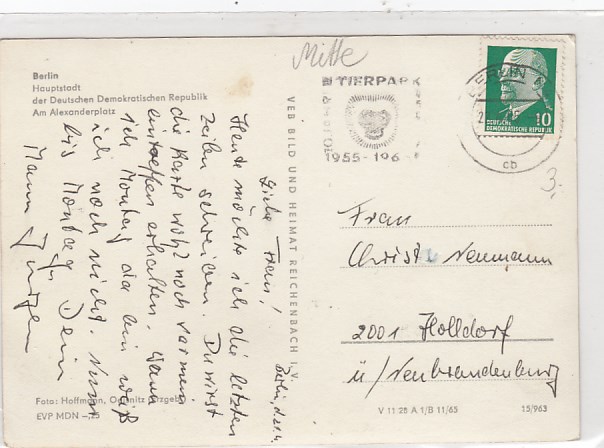 Berlin
Hauptstadt
der Deutschen Demokratischen Republik
Am Alexanderplatz
Mitte
TIERPARK
BERLIN
1955-196
BERLIN
cb
10
DEUTSCHE
DEMOKRATISCHE REPUBLIK
3,-
VEB BILD UND HEIMAT REICHENBACH i. V.
Berlin, d. 21.4.
Liebe Frau!
Heute möchte ich die letzten
Zeilen schreiben. Du wirst
die Karte wohl noch vor mein
eintreffen erhalten. Wann
ich Montag da bin weiß
ich noch nicht. Nun
bis Montag Dein
Mann Jürgen
Frau
Christ Neumann
2001 Holldorf
ü/Neubrandenburg
Foto: Hoffmann,
EVP MDN -,25
V 11 28 A 1/B 11/65
15/963